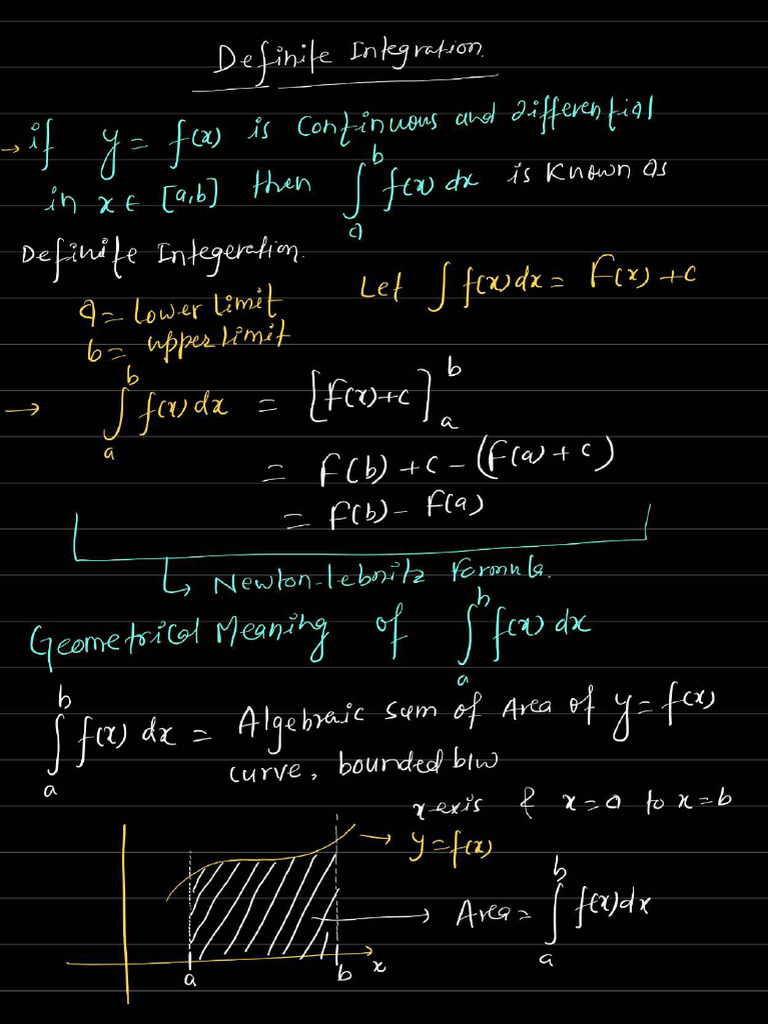 Definite Integration.
→ if y = f(x) is continuous and differential
in x ∈ [a,b] then ∫_a^b f(x) dx is known as
Definite Integeration.
Let ∫ f(x) dx = F(x) + c
a = lower limit
b = upper limit
→ ∫_a^b f(x) dx = [F(x)+c]_a^b
= F(b) + c - (F(a) + c)
= F(b) - F(a)
↳ Newton-lebnitz formula.
Geometrical Meaning of ∫_a^b f(x) dx
∫_a^b f(x) dx = Algebraic sum of Area of y = f(x)
curve, bounded b/w
x-exis & x=a to x=b
→ y=f(x)
→ Area = ∫_a^b f(x)dx
a b x